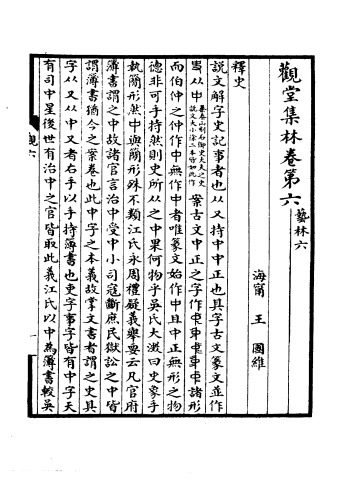 觀堂集林卷第六 藝林六
海甯 王國維
釋史
說文解字史記事者也从又持中中正也其字古文篆文並作
从中 秦泰山刻石御史大夫之史說文大小徐二本皆如此作 案古文中正之字作諸形
而伯仲之仲作中無作中者唯篆文始作中且中正無形之物
德非可手持然則史所从之中果何物乎吳氏大澂曰史象手
執簡形然中與簡形殊不類江氏永周禮疑義舉要云凡官府
簿書謂之中故諸官言治中受中小司寇斷庶民獄訟之中皆
謂簿書猶今之案卷也此中字之本義故掌文書者謂之史其
字从又从中又者右手以手持簿書也吏字事字皆有中字天
有司中星後世有治中之官皆取此義江氏以中為簿書較吳
觀六
一